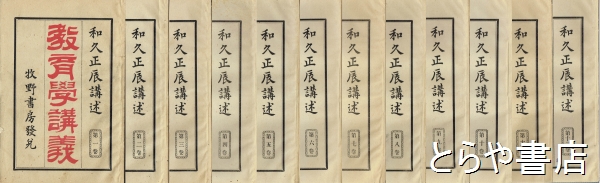 和久正辰講述
教育學講義
牧野書房發兌
第一卷
和久正辰講述
第二卷
和久正辰講述
第三卷
和久正辰講述
第四卷
和久正辰講述
第五卷
和久正辰講述
第六卷
和久正辰講述
第七卷
和久正辰講述
第八卷
和久正辰講述
和久正辰講述
第十
和久正辰講述
和久正辰講述
とらや書店